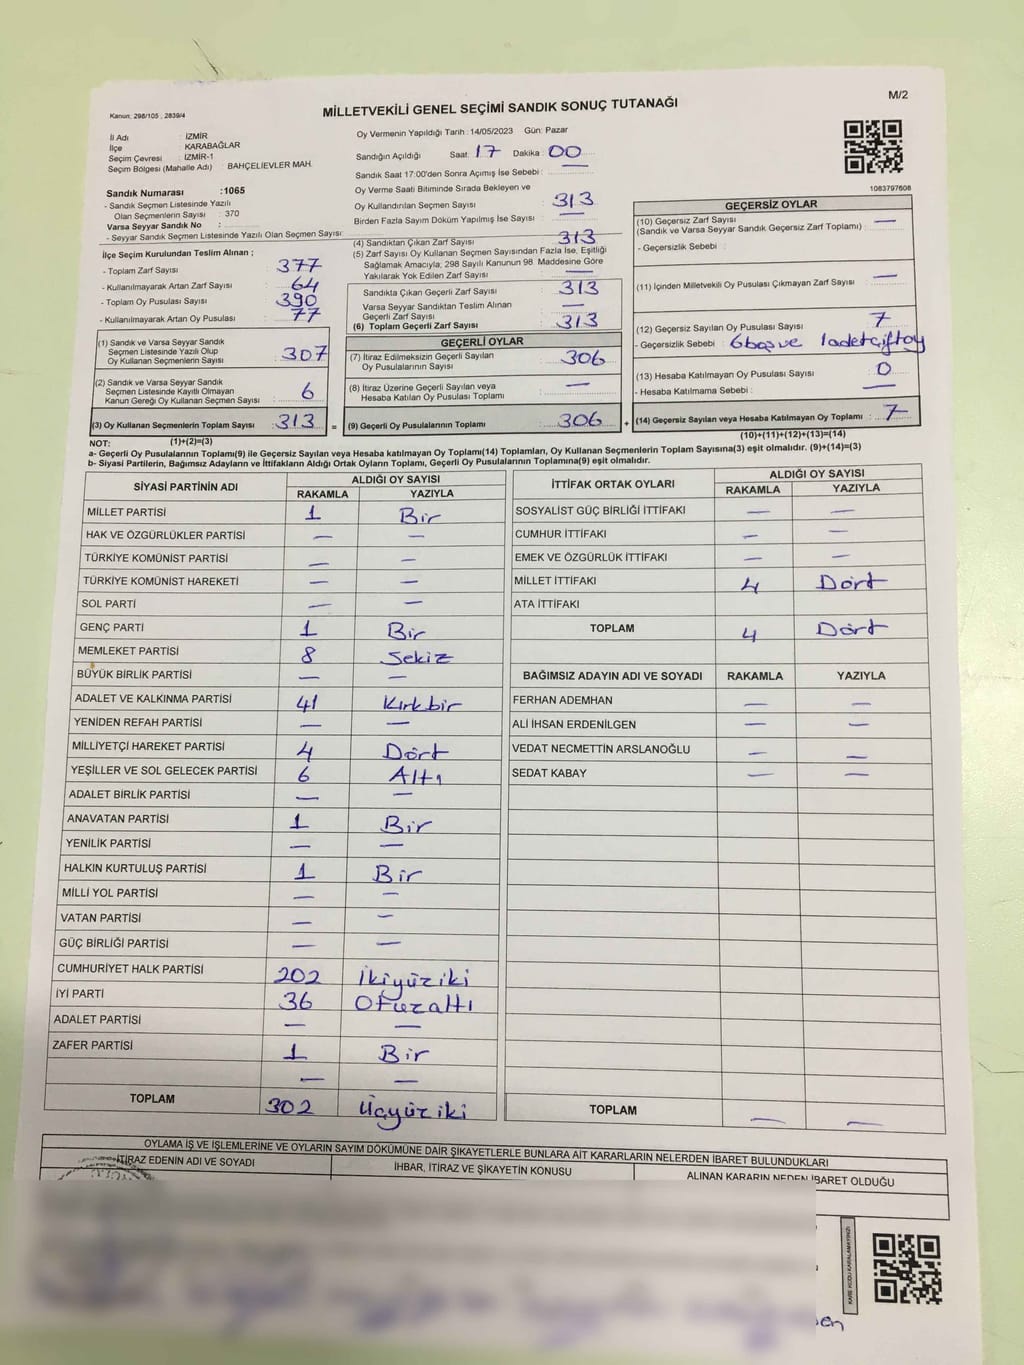 M/2
Kanun: 298/105 , 2839/4
MİLLETVEKİLİ GENEL SEÇİMİ SANDIK SONUÇ TUTANAĞI
İl Adı : İZMİR
İlçe KARABAĞLAR
Seçim Çevresi : İZMİR-1
Seçim Bölgesi (Mahalle Adı) : BAHÇELİEVLER MAH.
Sandık Numarası :1065
- Sandık Seçmen Listesinde Yazılı
Olan Seçmenlerin Sayısı : 370
Varsa Seyyar Sandık No :
- Seyyar Sandık Seçmen Listesinde Yazılı Olan Seçmen Sayısı:
Oy Vermenin Yapıldığı Tarih : 14/05/2023 Gün: Pazar
Sandığın Açıldığı Saat: 17 Dakika : 00
Sandık Saat 17:00'den Sonra Açımış İse Sebebi : —
Oy Verme Saati Bitiminde Sırada Bekleyen ve
Oy Kullandırılan Seçmen Sayısı : 313
Birden Fazla Sayım Döküm Yapılmış İse Sayısı : —
1083797608
İlçe Seçim Kurulundan Teslim Alınan ;
- Toplam Zarf Sayısı : 377
- Kullanılmayarak Artan Zarf Sayısı : 64
- Toplam Oy Pusulası Sayısı : 390
- Kullanılmayarak Artan Oy Pusulası : 77
(1) Sandık ve Varsa Seyyar Sandık
Seçmen Listesinde Yazılı Olup
Oy Kullanan Seçmenlerin Sayısı : 307
(2) Sandık ve Varsa Seyyar Sandık
Seçmen Listesinde Kayıtlı Olmayan
Kanun Gereği Oy Kullanan Seçmen Sayısı : 6
(3) Oy Kullanan Seçmenlerin Toplam Sayısı : 313
(4) Sandıktan Çıkan Zarf Sayısı : 313
(5) Zarf Sayısı Oy Kullanan Seçmen Sayısından Fazla İse, Eşitliği
Sağlamak Amacıyla, 298 Sayılı Kanunun 98. Maddesine Göre
Yakılarak Yok Edilen Zarf Sayısı : —
Sandıkta Çıkan Geçerli Zarf Sayısı : 313
Varsa Seyyar Sandıktan Teslim Alınan
Geçerli Zarf Sayısı : —
(6) Toplam Geçerli Zarf Sayısı : 313
GEÇERLİ OYLAR
(7) İtiraz Edilmeksizin Geçerli Sayılan
Oy Pusulalarının Sayısı : 306
(8) İtiraz Üzerine Geçerli Sayılan veya
Hesaba Katılan Oy Pusulası Toplamı : —
= (9) Geçerli Oy Pusulalarının Toplamı : 306
GEÇERSİZ OYLAR
(10) Geçersiz Zarf Sayısı —
(Sandık ve Varsa Seyyar Sandık Geçersiz Zarf Toplamı) :
- Geçersizlik Sebebi :
(11) İçinden Milletvekili Oy Pusulası Çıkmayan Zarf Sayısı : —
(12) Geçersiz Sayılan Oy Pusulası Sayısı : 7
- Geçersizlik Sebebi : 6 boş ve 1 adet çift oy
(13) Hesaba Katılmayan Oy Pusulası Sayısı : 0
- Hesaba Katılmama Sebebi : —
+ (14) Geçersiz Sayılan veya Hesaba Katılmayan Oy Toplamı : 7
NOT: (1)+(2)=(3)
(10)+(11)+(12)+(13)=(14)
a- Geçerli Oy Pusulasının Toplamı(9) ile Geçersiz Sayılan veya Hesaba katılmayan Oy Toplamı(14) Toplamları, Oy Kullanan Seçmenlerin Toplam Sayısına(3) eşit olmalıdır. (9)+(14)=(3)
b- Siyasi Partilerin, Bağımsız Adayların ve İttifakların Aldığı Ortak Oyların Toplamı, Geçerli Oy Pusulalarının Toplamına(9) eşit olmalıdır.
SİYASİ PARTİNİN ADI ALDIĞI OY SAYISI
RAKAMLA YAZIYLA
MİLLET PARTİSİ 1 Bir
HAK VE ÖZGÜRLÜKLER PARTİSİ — —
TÜRKİYE KOMÜNİST PARTİSİ — —
TÜRKİYE KOMÜNİST HAREKETİ — —
SOL PARTİ — —
GENÇ PARTİ 1 Bir
MEMLEKET PARTİSİ 8 Sekiz
BÜYÜK BİRLİK PARTİSİ — —
ADALET VE KALKINMA PARTİSİ 41 Kırkbir
YENİDEN REFAH PARTİSİ — —
MİLLİYETÇİ HAREKET PARTİSİ 4 Dört
YEŞİLLER VE SOL GELECEK PARTİSİ 6 Altı
ADALET BİRLİK PARTİSİ — —
ANAVATAN PARTİSİ 1 Bir
YENİLİK PARTİSİ — —
HALKIN KURTULUŞ PARTİSİ 1 Bir
MİLLİ YOL PARTİSİ — —
VATAN PARTİSİ — —
GÜÇ BİRLİĞİ PARTİSİ — —
CUMHURİYET HALK PARTİSİ 202 İkiyüziki
İYİ PARTİ 36 Otuzaltı
ADALET PARTİSİ — —
ZAFER PARTİSİ 1 Bir
— —
TOPLAM 302 Üçyüziki
İTTİFAK ORTAK OYLARI ALDIĞI OY SAYISI
RAKAMLA YAZIYLA
SOSYALİST GÜÇ BİRLİĞİ İTTİFAKI — —
CUMHUR İTTİFAKI — —
EMEK VE ÖZGÜRLÜK İTTİFAKI — —
MİLLET İTTİFAKI 4 Dört
ATA İTTİFAKI
TOPLAM 4 Dört
BAĞIMSIZ ADAYIN ADI VE SOYADI RAKAMLA YAZIYLA
FERHAN ADEMHAN — —
ALİ İHSAN ERDENİLGEN — —
VEDAT NECMETTİN ARSLANOĞLU — —
SEDAT KABAY — —
TOPLAM — —
OYLAMA İŞ VE İŞLEMLERİNE VE OYLARIN SAYIM DÖKÜMÜNE DAİR ŞİKAYETLERLE BUNLARA AİT KARARLARIN NELERDEN İBARET BULUNDUKLARI
İTİRAZ EDENİN ADI VE SOYADI İHBAR, İTİRAZ VE ŞİKAYETİN KONUSU ALINAN KARARIN NEDEN İBARET OLDUĞU
KARE KODU KARALAMAYINIZ!